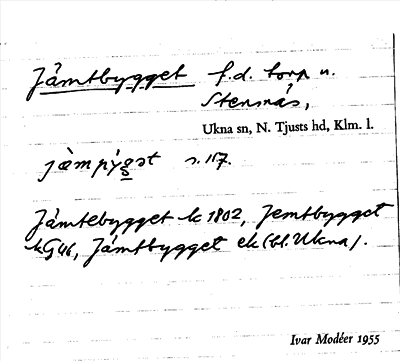 Jämtbygget f.d. torp u.
Stensnäs,
Ukna sn, N. Tjusts hd, Klm. l.
jàmpýgət s. 117.
Jämtebygget k 1802, Jemtbygget
k G46, Jämtbygget ek (bl. Ukna).
Ivar Modéer 1955